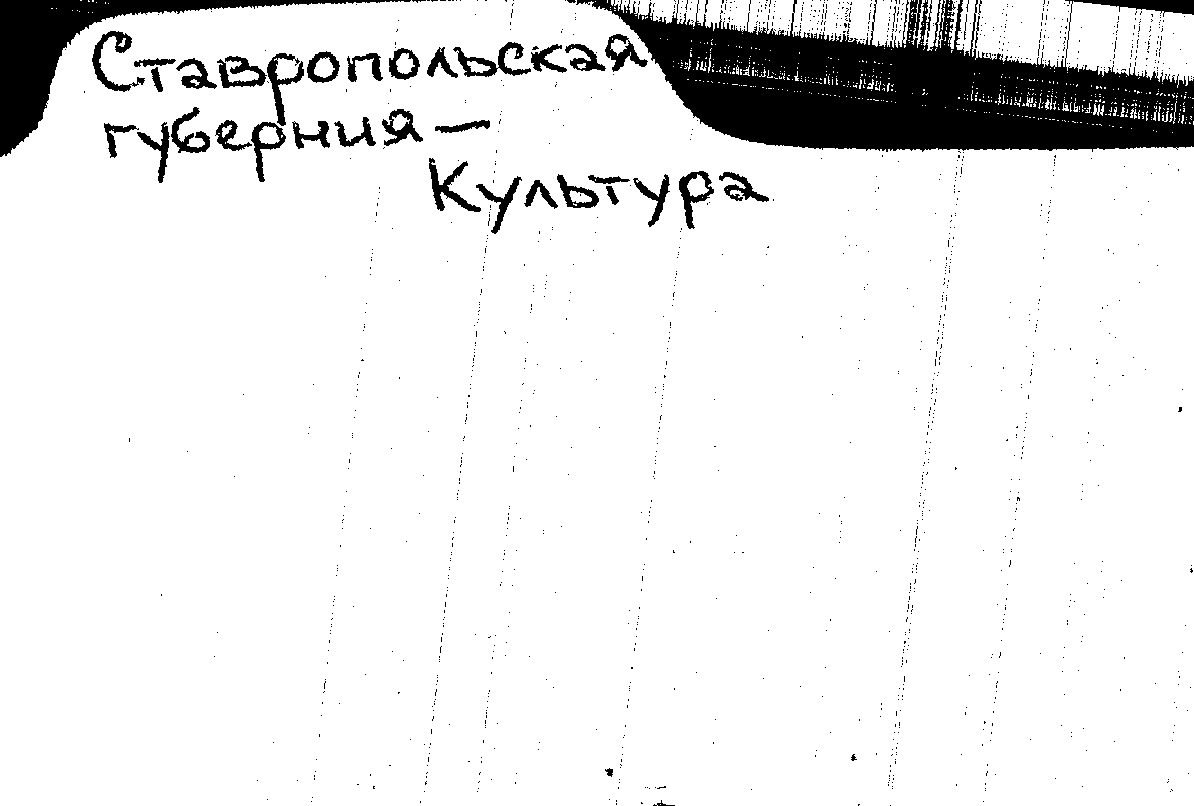 Ставропольская
губерния —
Культура